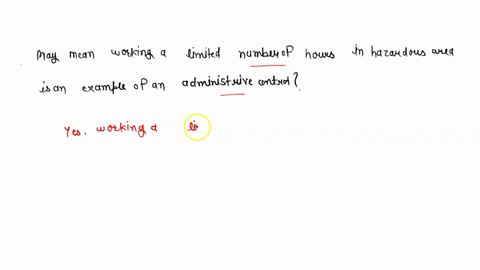 May mean working a limited number of hours in hazardous area
is an example of an administrive control?
Yes, working a li